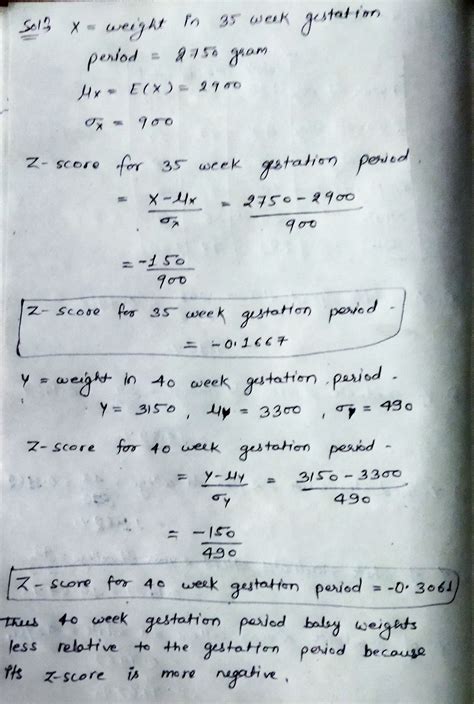 Sol⁠ⁿ X = weight in 35 week gestation
period = 2750 gram
μx = E(X) = 2900
σx = 900
Z-score for 35 week gestation period.
= X-μx / σx = 2750-2900 / 900
= -150 / 900
Z-score for 35 week gestation period -
= -0.1667
Y = weight in 40 week gestation period -
Y = 3150, μy = 3300, σy = 490
Z-score for 40 week gestation period -
= Y-μy / σy = 3150-3300 / 490
= -150 / 490
Z-score for 40 week gestation period = -0.3061
Thus 40 week gestation period baby weights
less relative to the gestation period because
its z-score is more negative.